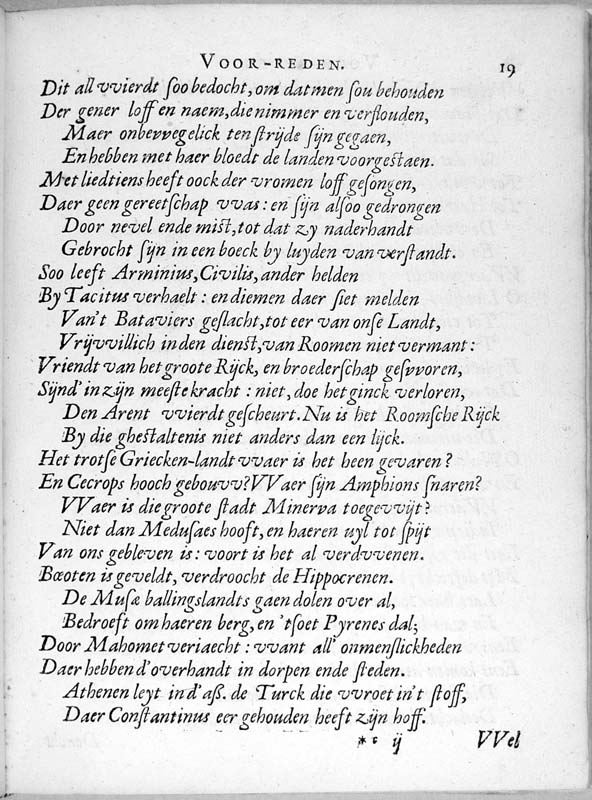 VOOR-REDEN. 19
Dit all vvierdt ſoo bedocht, om datmen ſou behouden
Der gener loff en naem, die nimmer en verſlouden,
Maer onbevvegelick ten ſtrijde ſijn gegaen,
En hebben met haer bloedt de landen voorgeſtaen.
Met liedtiens heeft oock der vromen loff geſongen,
Daer geen gereetſchap vvas: en ſijn alſoo gedrongen
Door nevel ende miſt, tot dat zy naderhandt
Gebrocht ſijn in een boeck by luyden van verſtandt.
Soo leeft Arminius, Civilis, ander helden
By Tacitus verhaelt: en diemen daer ſiet melden
Van't Bataviers geſlacht, tot eer van onſe Landt,
Vrijvvillich in den dienſt, van Roomen niet vermant:
Vriendt van het groote Rijck, en broederſchap geſvvoren,
Sijnd' in zijn meeſte kracht: niet, doe het ginck verloren,
Den Arent vvierdt geſcheurt. Nu is het Roomſche Rijck
By die gheſtaltenis niet anders dan een lijck.
Het trotſe Griecken-landt vvaer is het heen gevaren?
En Cecrops hooch gebouvv? VVaer ſijn Amphions ſnaren?
VVaer is die groote ſtadt Minerva toegevvijt?
Niet dan Meduſaes hooft, en haeren uyl tot ſpijt
Van ons gebleven is: voort is het al verdvvenen.
Bœoten is geveldt, verdroocht de Hippocrenen.
De Muſæ ballingslandts gaen dolen over al,
Bedroeft om haeren berg, en 'tſoet Pyrenes dal;
Door Mahomet veriaecht: vvant all' onmenſlickheden
Daer hebben d'overhandt in dorpen ende ſteden.
Athenen leyt in d'aß. de Turck die vvroet in't ſtoff,
Daer Conſtantinus eer gehouden heeft zijn hoff.
*c ij VVel